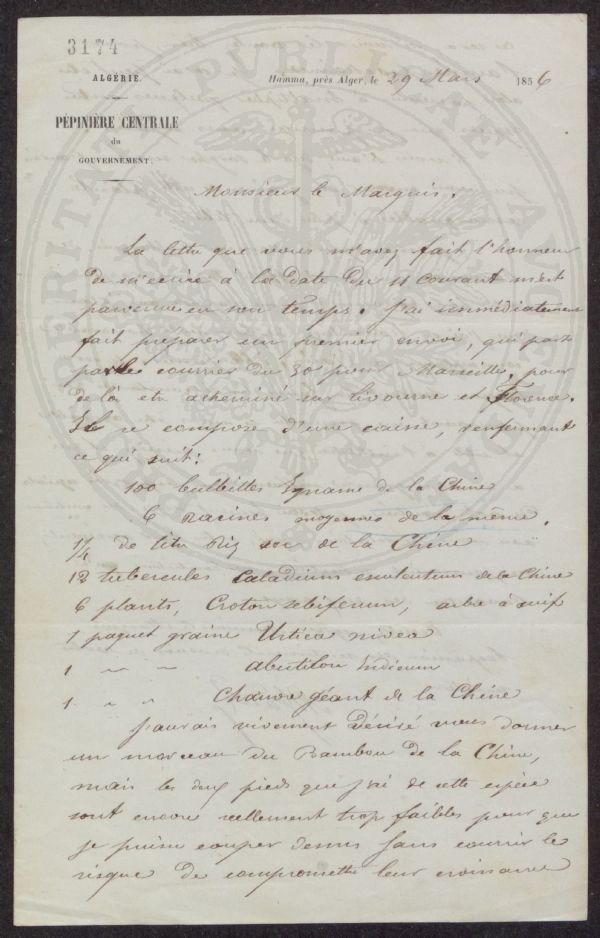 3174
ALGÉRIE.
PÉPINIÈRE CENTRALE
du
GOUVERNEMENT.
Hamma, près Alger, le 29 Mars 1856
Monsieur le Marquis.
La lettre que vous m'avez fait l'honneur
de m'écrire à la date du 11 courant m'est
parvenue en son temps. J'ai immédiatement
fait préparer un premier envoi, qui part
par le courrier du 30 pour Marseille, pour
de là être acheminé sur Livourne et Florence.
Il se compose d'une caisse, renfermant
ce qui suit:
100 bulbilles Igname de la Chine
6 racines moyennes de la même.
1/4 de litre Riz sec de la Chine
12 tubercules Caladium esculentum de la Chine
6 plants, Croton sebiferum, arbre à suif
1 paquet graine Urtica nivea
1 " " abutilon Indicum
1 " " Chanvre géant de la Chine
J'aurais vivement désiré vous donner
un morceau du Bambou de la Chine,
mais les deux pieds que j'ai de cette espèce
sont encore réellement trop faibles pour que
je puisse couper dessus sans courrir le
risque de compromettre leur croissance